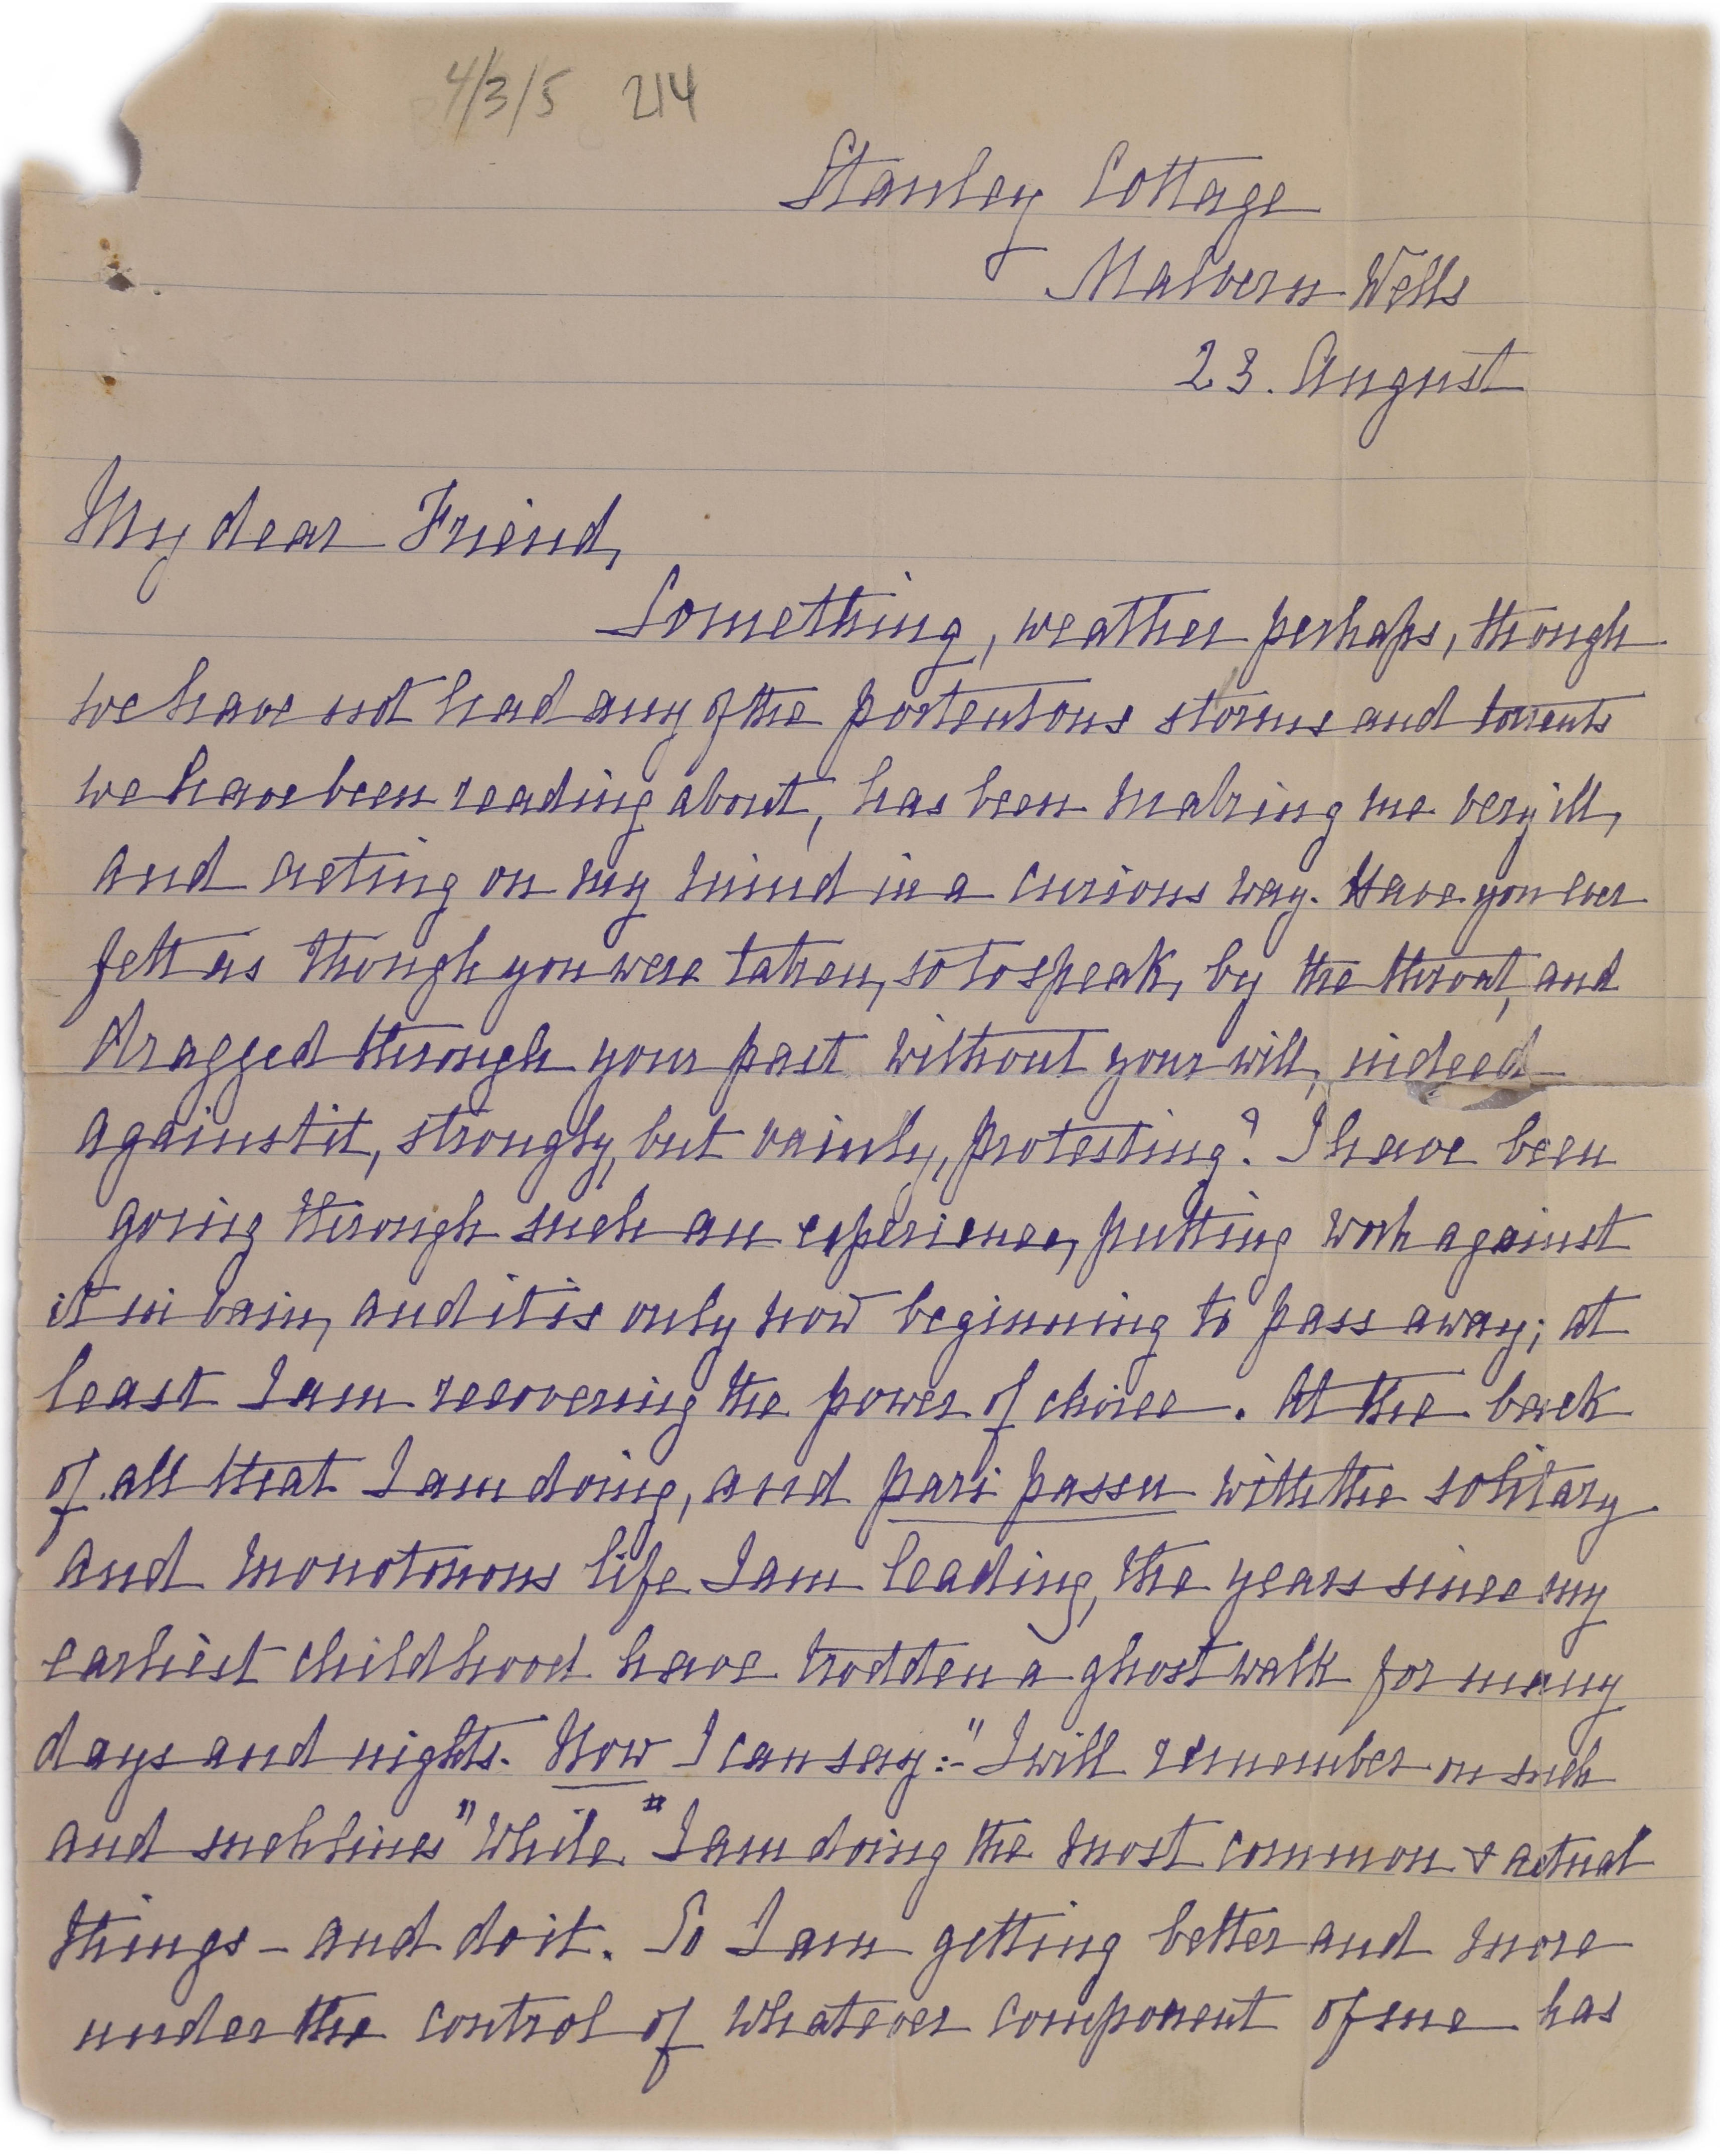 4/3/5 214
Stanley Cottage
Malvern Wells
23. August
My dear Friend,
Something, weather perhaps, though
we have not had any of the portentous storms and torrents
we have been reading about, has been making me very ill,
and acting on my mind in a curious way. Have you ever
felt as though you were taken, so to speak, by the throat, and
dragged through your past without your will, indeed
against it, strongly, but vainly, protesting? I have been
going through such an experience, putting work against
it in vain, and it is only now beginning to pass away; at
least I am recovering the power of choice. At the back
of all that I am doing, and pari passu with the solitary
and monotonous life I am leading, the years since my
earliest childhood have trodden a ghost walk for many
days and nights. Now I can say:-"I will remember on such
and such lines" while I am doing the most common & actual
things - and do it. So I am getting better and more
under the control of whatever component of me has